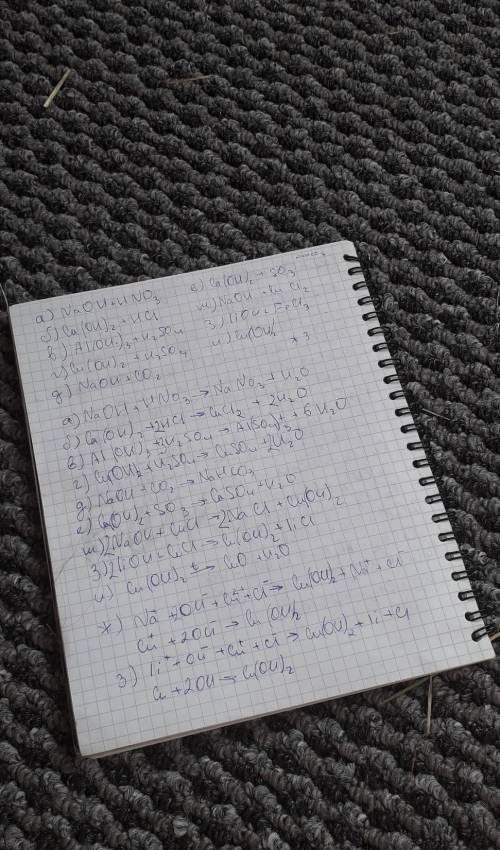 а) NaOH + HNO3
б) Ca(OH)2 + HCl
в) Al(OH)3 + H2SO4
г) Cu(OH)2 + H2SO4
д) NaOH + CO2
е) Ca(OH)2 + SO3
ж) NaOH + CuCl2
з) LiOH + FeCl3
и) Cu(OH)2
* 3
а) NaOH + HNO3 → NaNO3 + H2O
б) Ca(OH)2 + 2HCl → CaCl2 + 2H2O
в) Al(OH)3 + 3H2SO4 → Al(SO4)3 + 6H2O
г) Cu(OH)2 + H2SO4 → CuSO4 + 2H2O
д) NaOH + CO2 → NaHCO3
е) Ca(OH)2 + SO3 → CaSO4 + H2O
ж) 2NaOH + CuCl → 2NaCl + Cu(OH)2
з) 2LiOH + CuCl → Cu(OH)2 + LiCl
и) Cu(OH)2 t→ CuO + H2O
ж) Na+ + 2OH- + Cu+ + Cl- → Cu(OH)2 + Na+ + Cl-
Cu+ + 2OH- → Cu(OH)2
з) Li+ + OH- + Cu+ + Cl- → Cu(OH)2 + Li + Cl
Cu + 2OH → Cu(OH)2